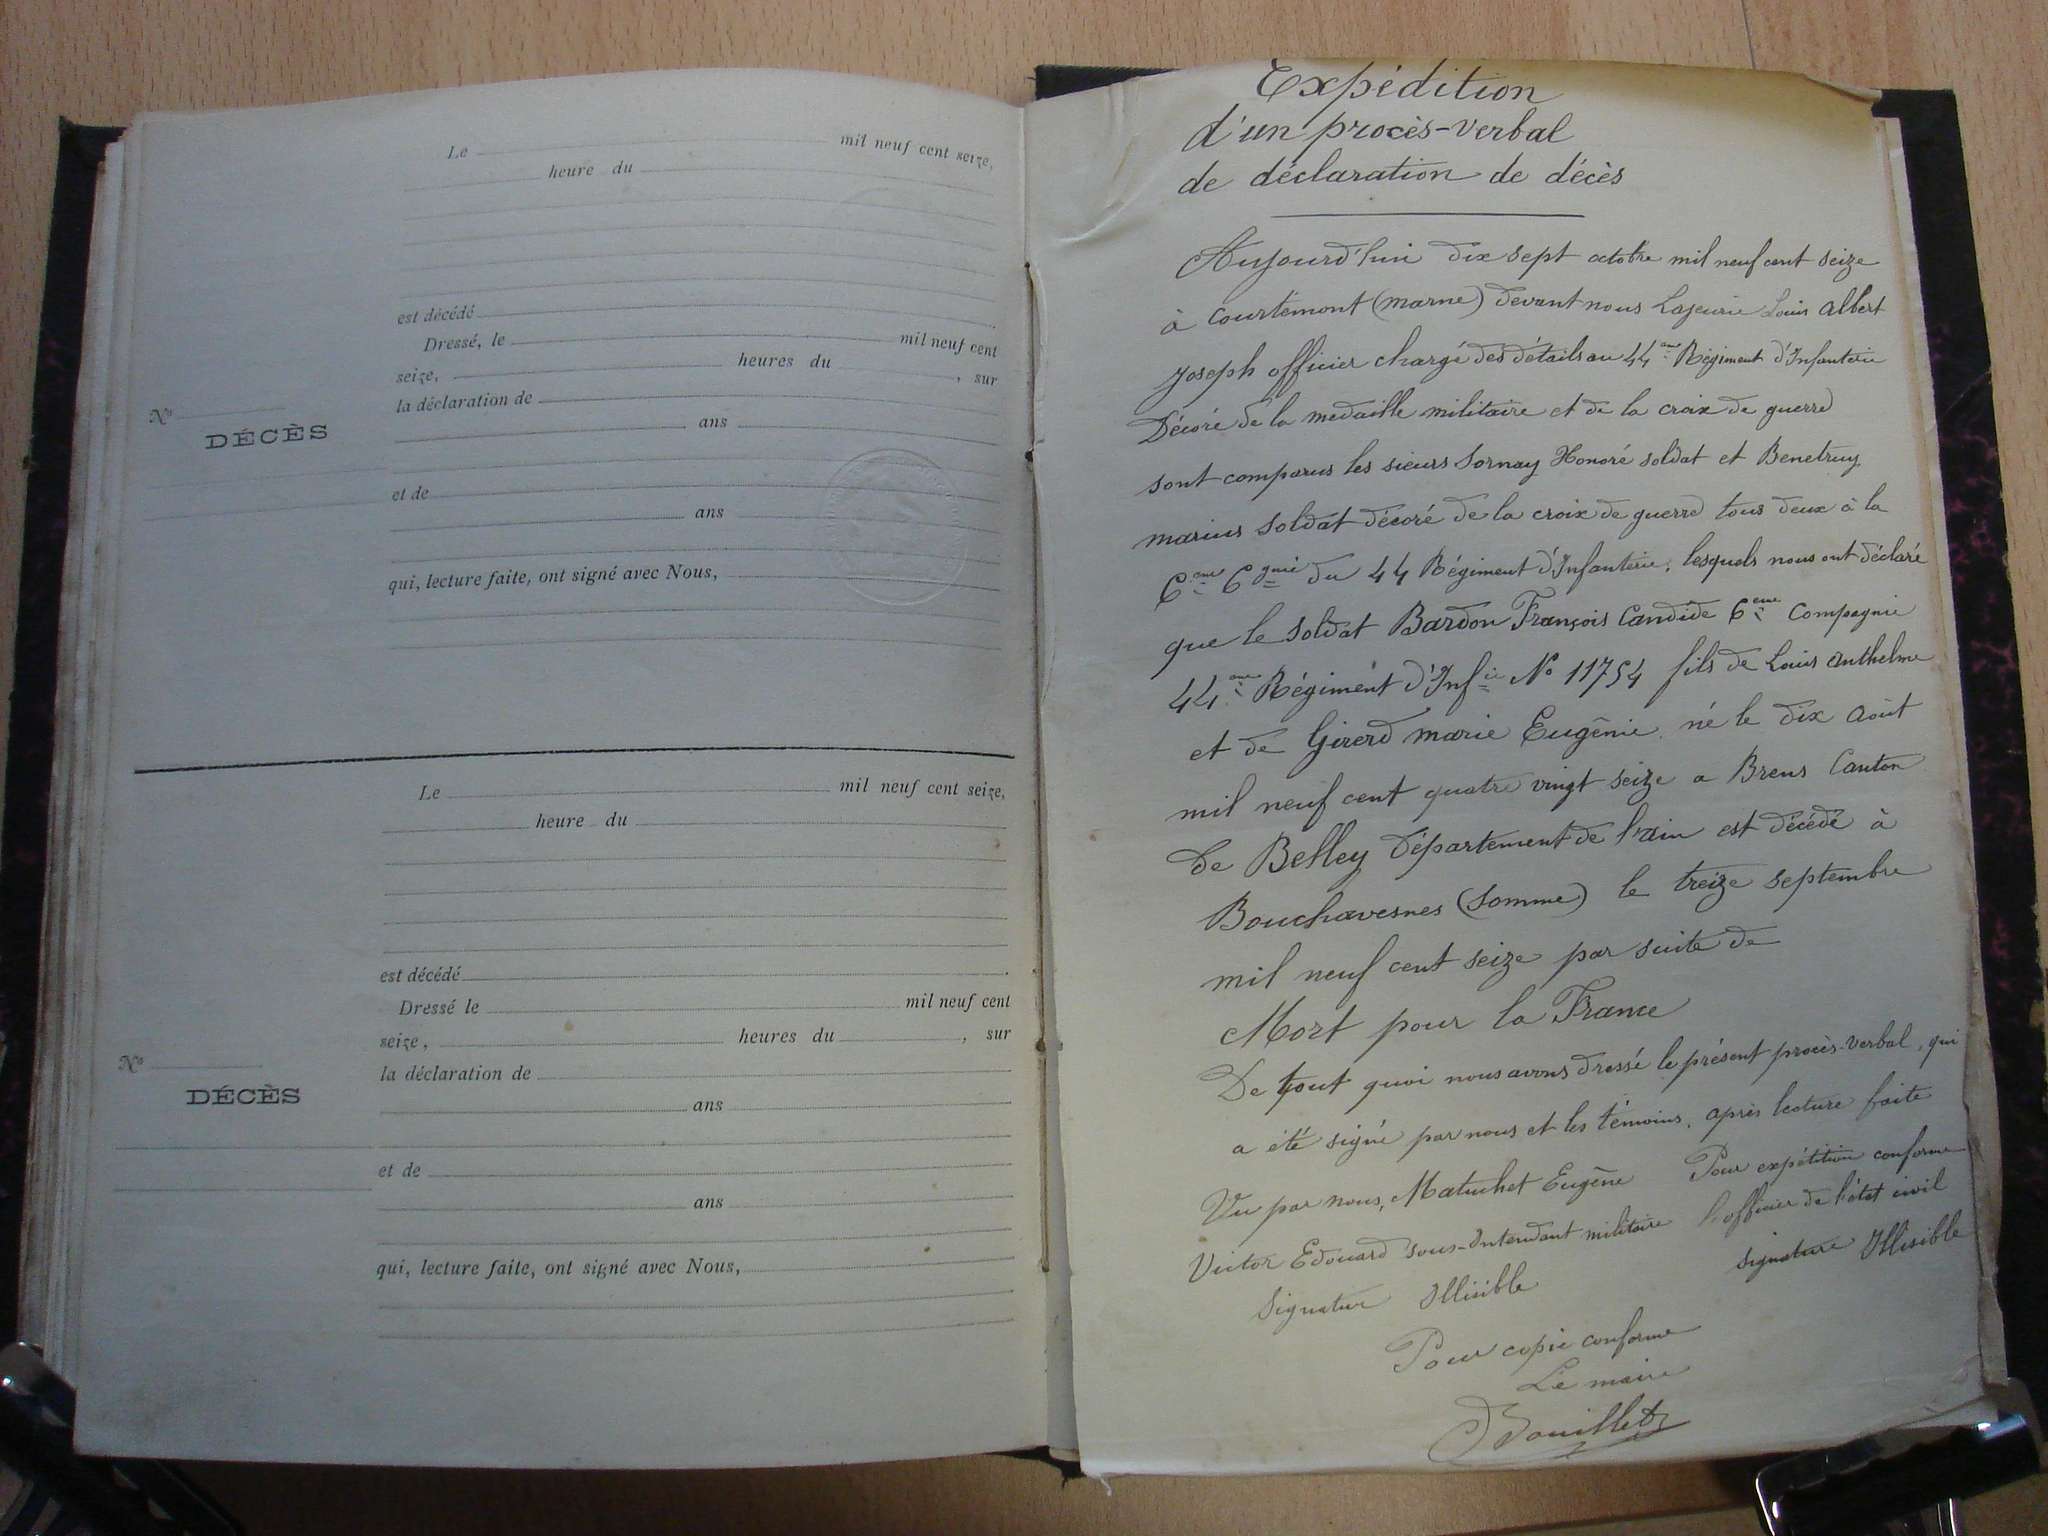 Le mil neuf cent seize,
heure du
est décédé
Dressé, le mil neuf cent
seize, heures du , sur
la déclaration de
ans
N°
DÉCÈS
et de
ans
qui, lecture faite, ont signé avec Nous,
Le mil neuf cent seize,
heure du
est décédé
Dressé le mil neuf cent
seize, heures du , sur
N°
la déclaration de
DÉCÈS
ans
et de
ans
qui, lecture faite, ont signé avec Nous,
Expédition
d'un procès-verbal
de déclaration de décès
Aujourd'hui dix sept octobre mil neuf cent seize
à Courtémont (marne) devant nous Lajeurie Louis Albert
Joseph officier chargé des détails au 44eme Régiment d'Infanterie
Décoré de la medaille militaire et de la croix de guerre
sont comparus les sieurs Sornay Honoré soldat et Benetruy
marius soldat décoré de la croix de guerre tous deux à la
6eme Cgnie du 44 Régiment d'Infanterie, lesquels nous ont déclaré
que le soldat Bardon François Candide 6eme Compagnie
44eme Régiment d'Infie No 11754 fils de Louis anthelme
et de Girerd marie Eugénie né le dix Août
mil neuf cent quatre vingt seize a Brens Canton
de Belley département de l'ain est décédé à
Bouchavesnes (Somme) le treize septembre
mil neuf cent seize par suite de
Mort pour la France
De tout quoi nous avons dressé le présent procès-verbal, qui
a été signé par nous et les témoins, après lecture faite
Vu par nous, Matuchet Eugène Pour expédition conforme
Victor Edouard sous-Intendant militaire L'officier de l'état civil
Signatur Illisible signature Illisible
Pour copie conforme
Le maire
Bouillet